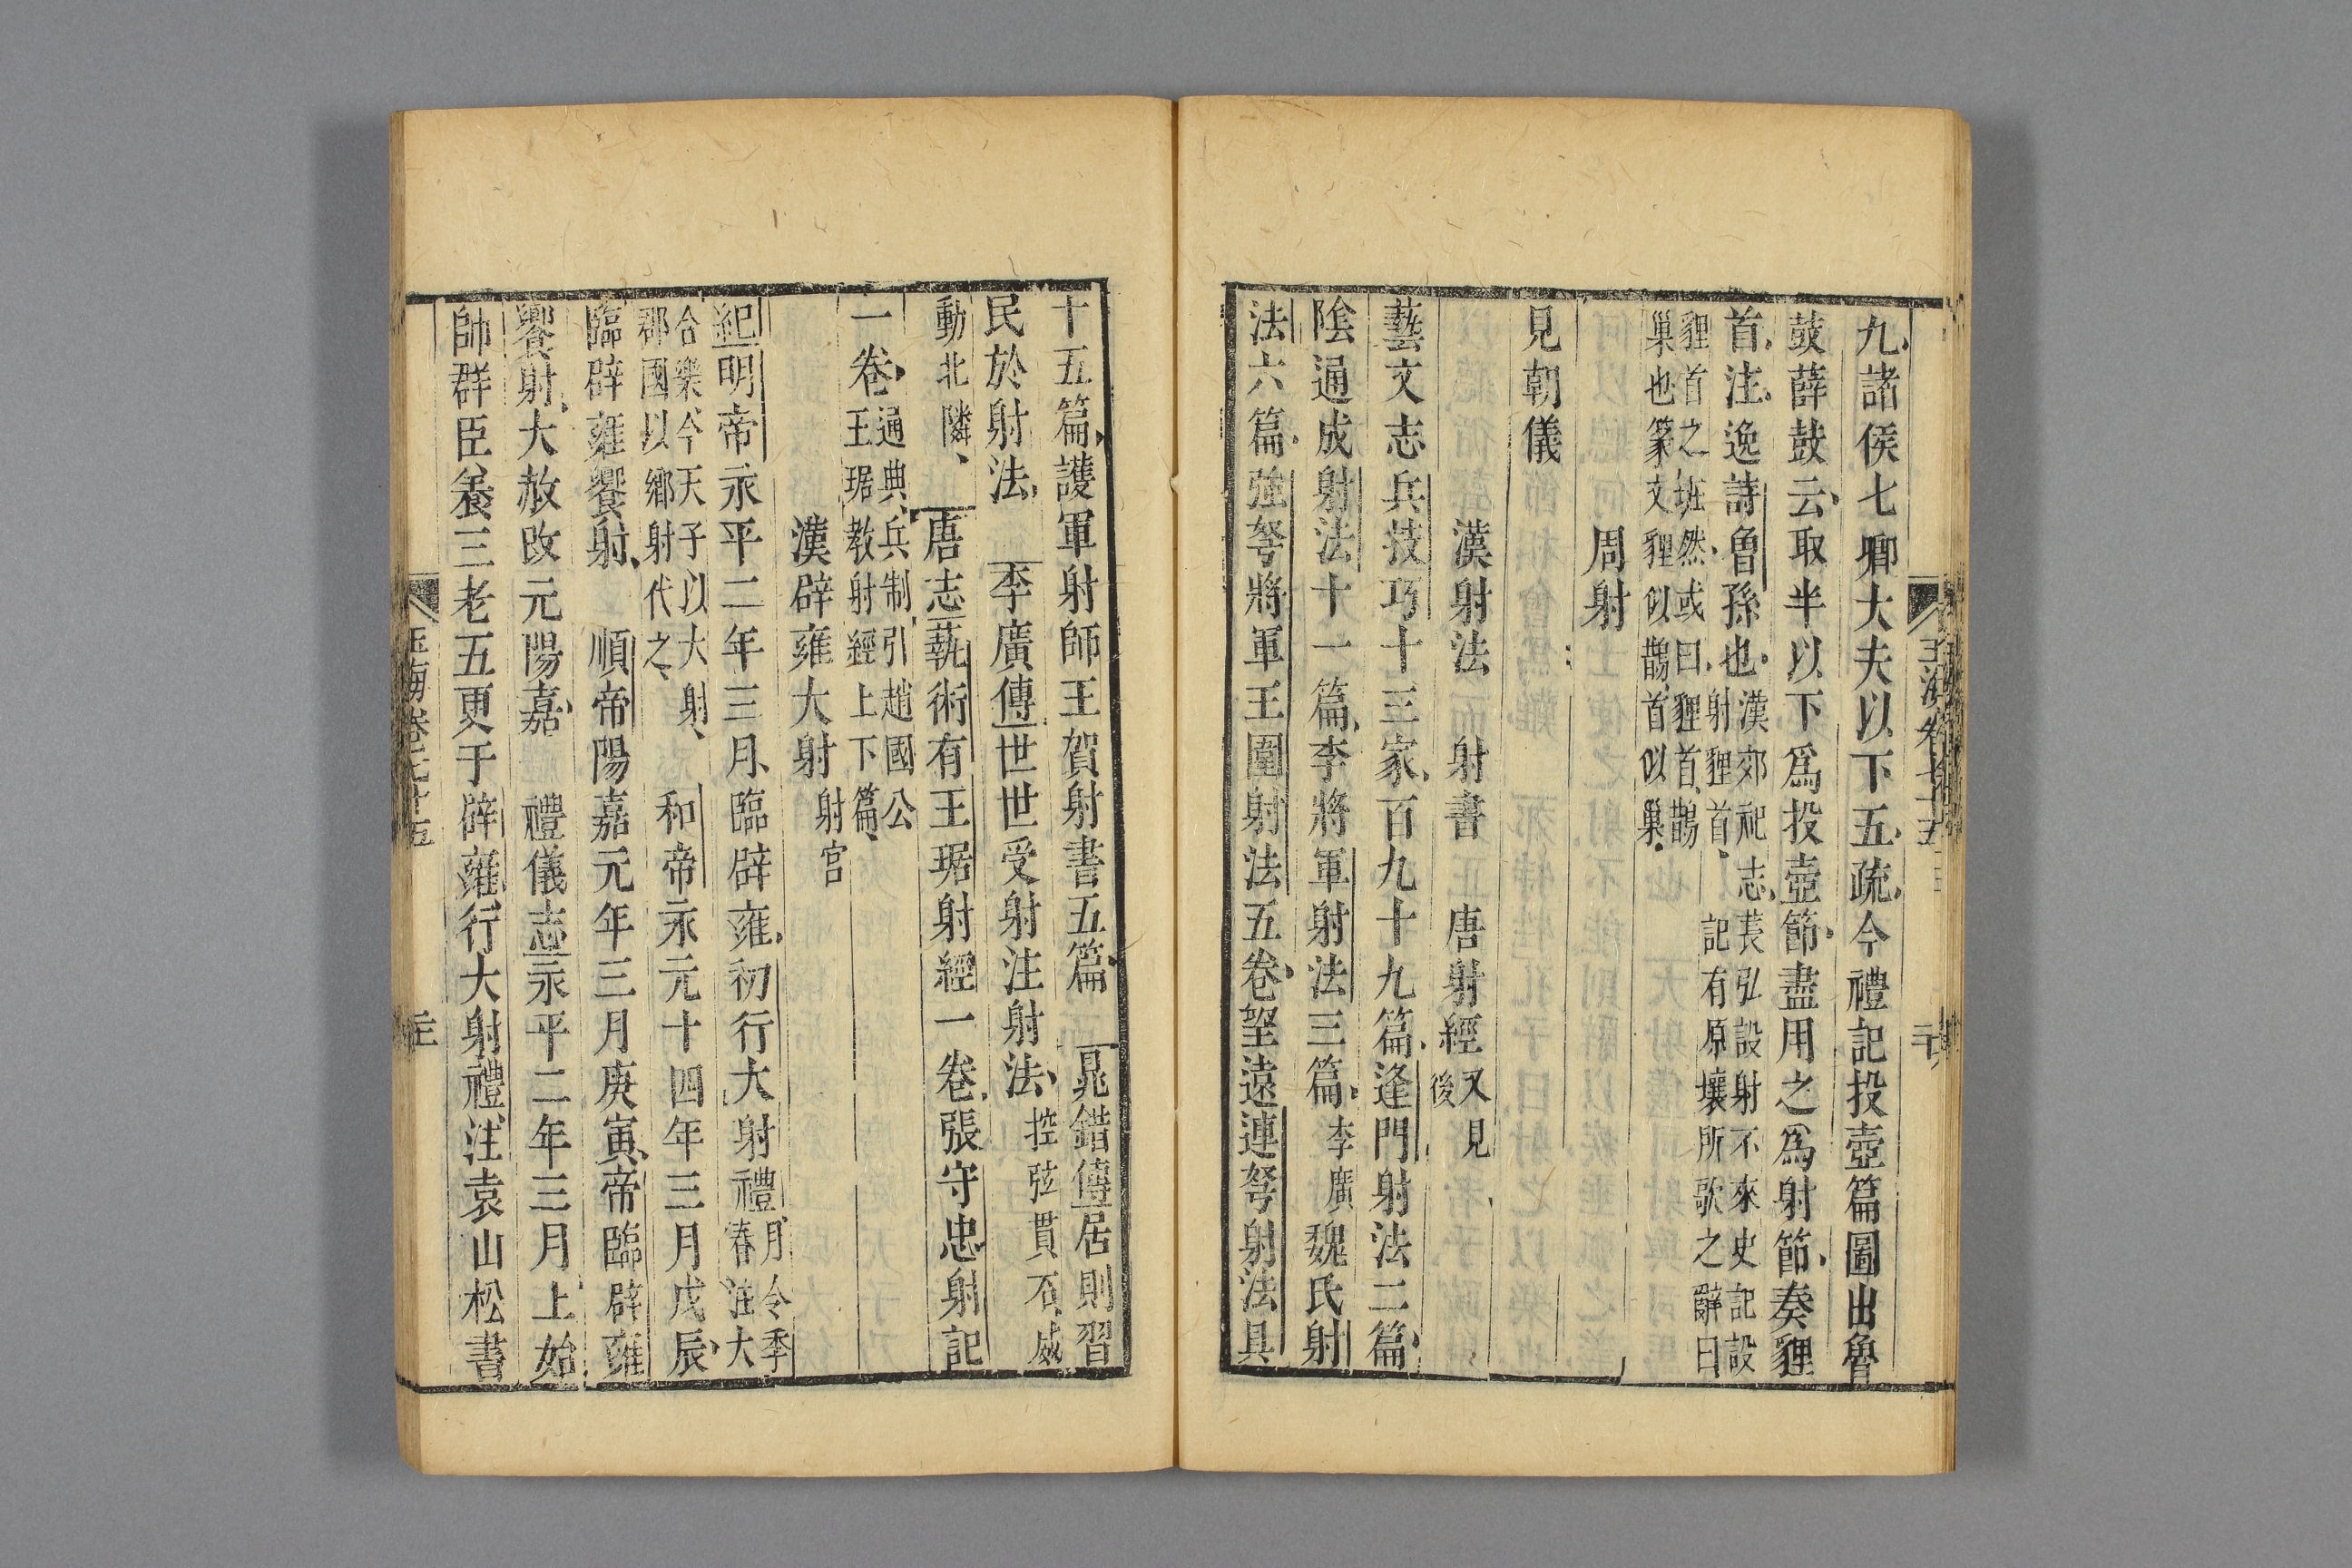 九諸侯七卿大夫以下五疏今禮記投壺篇圖出魯
鼓薛鼓云取半以下爲投壺節盡用之爲射節奏貍
首注逸詩魯孫也漢郊祀志萇弘設射不來史記設
射貍首記有原壤所歌之辭曰
貍首之班然或曰貍首鵲
巢也篆文貍似鵲首似巢
周射
見朝儀
漢射法 射書 唐射經又見後
藝文志兵技巧十三家百九十九篇逢門射法二篇
陰通成射法十一篇李將軍射法三篇李廣魏氏射
法六篇強弩將軍王圍射法五卷望遠連弩射法具
十五篇護軍射師王賀射書五篇 鼂錯傳居則習
民於射法 李廣傳世世受射注射法控弦貫石威
動北隣 唐志藝術有王琚射經一卷張守忠射記
一卷通典兵制引趙國公
王琚教射經上下篇
漢辟雍大射 射宮
紀明帝永平二年三月臨辟雍初行大射禮月令季
春注大
合樂今天子以大射
郡國以鄉射代之 和帝永元十四年三月戊辰
臨辟雍饗射 順帝陽嘉元年三月庚寅帝臨辟雍
饗射大赦改元陽嘉 禮儀志永平二年三月上始
帥群臣養三老五更于辟雍行大射禮注袁山松書
玉海卷七十五